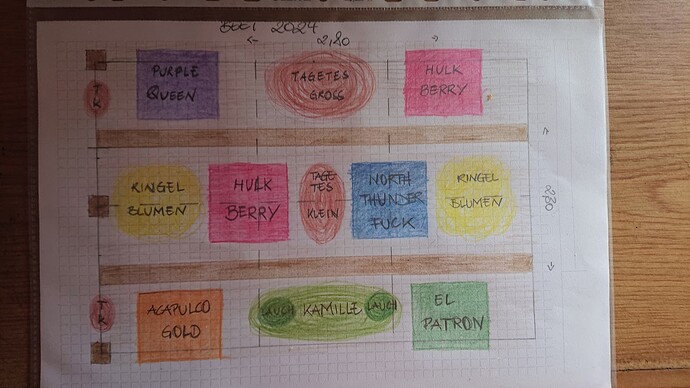 BEET 2024
2,80
T
K
PURPLE
QUEEN
TAGETES
GROSS
HULK
BERRY
RINGEL
BLUMEN
HULK
BERRY
TAGE
TES
KLEIN
NORTH
THUNDER
FUCK
RINGEL
BLUMEN
2,80
T
K
ACAPULCO
GOLD
LAUCH KAMILLE LAUCH
EL
PATRON